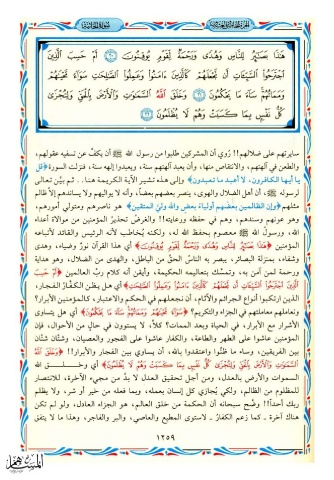 هَٰذَا بَصَائِرُ لِلنَّاسِ وَهُدًى وَرَحْمَةٌ لِقَوْمٍ يُوقِنُونَ ﴿٢٠﴾ أَمْ حَسِبَ الَّذِينَ
اجْتَرَحُوا السَّيِّئَاتِ أَنْ نَجْعَلَهُمْ كَالَّذِينَ آمَنُوا وَعَمِلُوا الصَّالِحَاتِ سَوَاءً مَحْيَاهُمْ
وَمَمَاتُهُمْ سَاءَ مَا يَحْكُمُونَ ﴿٢١﴾ وَخَلَقَ اللَّهُ السَّمَاوَاتِ وَالْأَرْضَ بِالْحَقِّ وَلِتُجْزَىٰ
كُلُّ نَفْسٍ بِمَا كَسَبَتْ وَهُمْ لَا يُظْلَمُونَ ﴿٢٢﴾
مسايرتهم على ضلالهم!! رُوي أن المشركين طلبوا من رسول الله ﷺ أن يكفَّ عن تسفيه عقولهم،
والطعن في آلهتهم، والانتقاص منها، وأن يعبد آلهتهم سنة، ويعبدوا إلهه سنة، فنزلت السورة ﴿قل
يا أيها الكافرون. لا أعبد ما تعبدون﴾ وإلى هذه تشير الآية الكريمة هنا.. ثم بيَّن تعالى
لرسوله ﷺ، أن أهل الضلال والهوى، ينصر بعضهم بعضاً، وأنه لا يواليهم ولا يساندهم إلا ظالم
مثلهم ﴿وإن الظالمين بعضهم أولياء بعض والله وليُّ المتقين﴾ هو ناصرهم ومتولي أمورهم،
وهو عونهم وسندهم، وهم في حفظه ورعايته!! والغرض تحذيرُ المؤمنين من موالاة أعداء
الله، ورسولُ الله ﷺ معصوم بحفظ الله له، ولكنه يُخاطب لأنه الرئيس والقائد لأتباعه
المؤمنين ﴿هَٰذَا بَصَائِرُ لِلنَّاسِ وَهُدًى وَرَحْمَةٌ لِقَوْمٍ يُوقِنُونَ﴾ أي هذا القرآن نورٌ وضياء، وهدى
وشفاء، بمنزلة البصائر، يبصر به الناسُ الحقَّ من الباطل، والهدى من الضلال، وهو هداية
ورحمة لمن آمن به، وتمسَّك بتعاليمه الحكيمة، وأيقن أنه كلام ربِّ العالمين ﴿أَمْ حَسِبَ
الَّذِينَ اجْتَرَحُوا السَّيِّئَاتِ أَنْ نَجْعَلَهُمْ كَالَّذِينَ آمَنُوا وَعَمِلُوا الصَّالِحَاتِ﴾ أي هل يظن الكفَّار الفجار،
الذين ارتكبوا أنواع الجرائم والآثام، أن نجعلهم في الحكم والاعتبار، كالمؤمنين الأبرار؟
ونعاملهم معاملتهم في الجزاء والتكريم؟ ﴿سَوَاءً مَحْيَاهُمْ وَمَمَاتُهُمْ سَاءَ مَا يَحْكُمُونَ﴾ أي هل يتساوى
الأشرار مع الأبرار، في الحياة وبعد الممات؟ كلاَّ، لا يستوون في حالٍ من الأحوال، فإن
المؤمنين عاشوا على الطهر والطاعة، والكفار عاشوا على الفجور والعصيان، وشتَّان شتَّان
بين الفريقين، وساء ما ظنُّوا واعتقدوا بالله، أن يساوي بين الفجار والأبرار!! ﴿وَخَلَقَ اللَّهُ
السَّمَاوَاتِ وَالْأَرْضَ بِالْحَقِّ وَلِتُجْزَىٰ كُلُّ نَفْسٍ بِمَا كَسَبَتْ وَهُمْ لَا يُظْلَمُونَ﴾ أي وخلق الله
السموات والأرض بالعدل، ومن أجل تحقيق العدل لا بدَّ من مجيء الآخرة، للانتصار
للمظلوم من الظالم، ولكي يُجازي كلُّ إنسان بعمله، وبما فعله من خير أو شر، ولا يظلم
ربك أحداً!! وضَّح سبحانه أن الحكمة من خلق العالم، هو الجزاءُ العادل، ولو لم تكن
هناك آخرة ـ كما زعم الكفار ـ لاستوى المطيع والعاصي، والبر والفاجر، وهذا ما لا يتفق
١٢٥٩